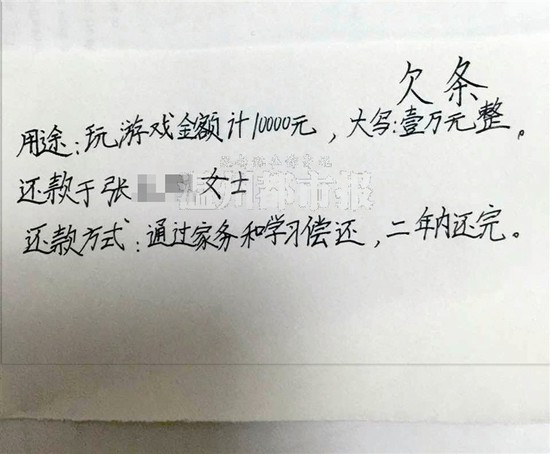 欠条
用途:玩游戏金额计10000元,大写:壹万元整。
还款于张 女士
温州都市报
还款方式:通过家务和学习偿还,二年内还完。